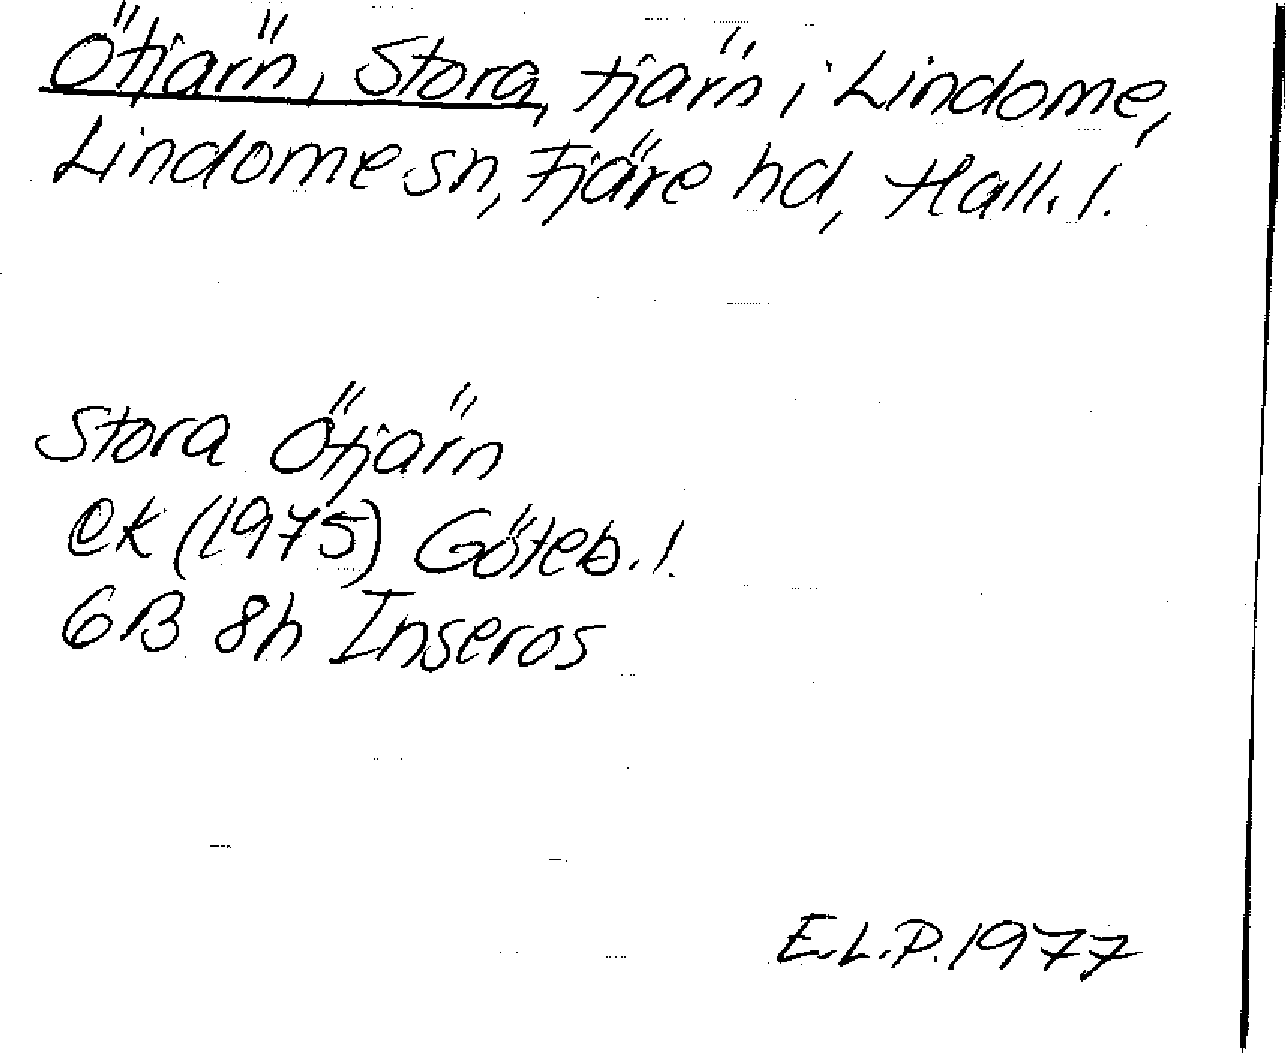 Ötjärn, Stora, tjärn i Lindome,
Lindome sn, Fjäre hd, Hall. l.
Stora Ötjärn
ek (1975) Göteb. l.
6B 8h Inseros
E.L.P. 1977